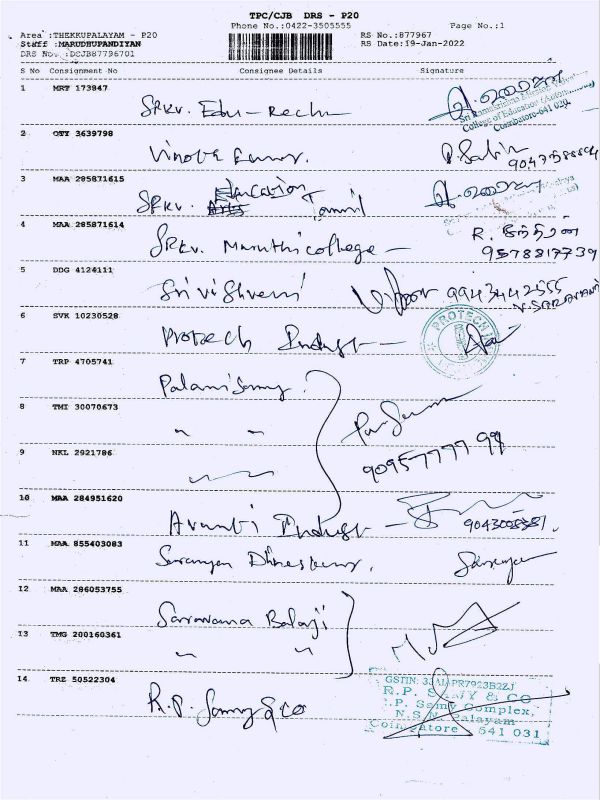 TPC/CJB DRS - P20
Phone No.:0422-3505555 Page No.:1
Area :THEKKUPALAYAM - P20 RS No.:877967
Staff :MARUDHUPANDIYAN RS Date:19-Jan-2022
DRS No. :DCJB87796701
S No Consignment No Consignee Details Signature
1 MRT 173847
SRKV. Edu-Rech
Sri Ramakrishna Mission Vidyalaya
College of Education (Autonomous)
Coimbatore-641 020.
2 OTY 3639798
Vinoth Kumar.
3 MAA 285871615
SRKV. Education Tamil
4 MAA 285871614
SRKV. Maruthi college - R.
9578817739
5 DDG 4124111
Sri vishveni 9943442555
V.SARAVANAN
6 SVK 10230528
Protech Indust - PROTECH
7 TRP 4705741
Palanisamy.
8 TMI 30070673
" "
9 NKL 2921786
9095777799
10 MAA 284951620
Avanti Indust -
11 MAA 855403083
Saranya Saranya
12 MAA 286053755
Saravana Balaji
13 TMG 200160361
" "
14 TRZ 50522304
R.P. Samy & Co
R.P. SAMY & CO
R.P. Samy Complex,
N.S.N. Palayam
Coimbatore - 641 031